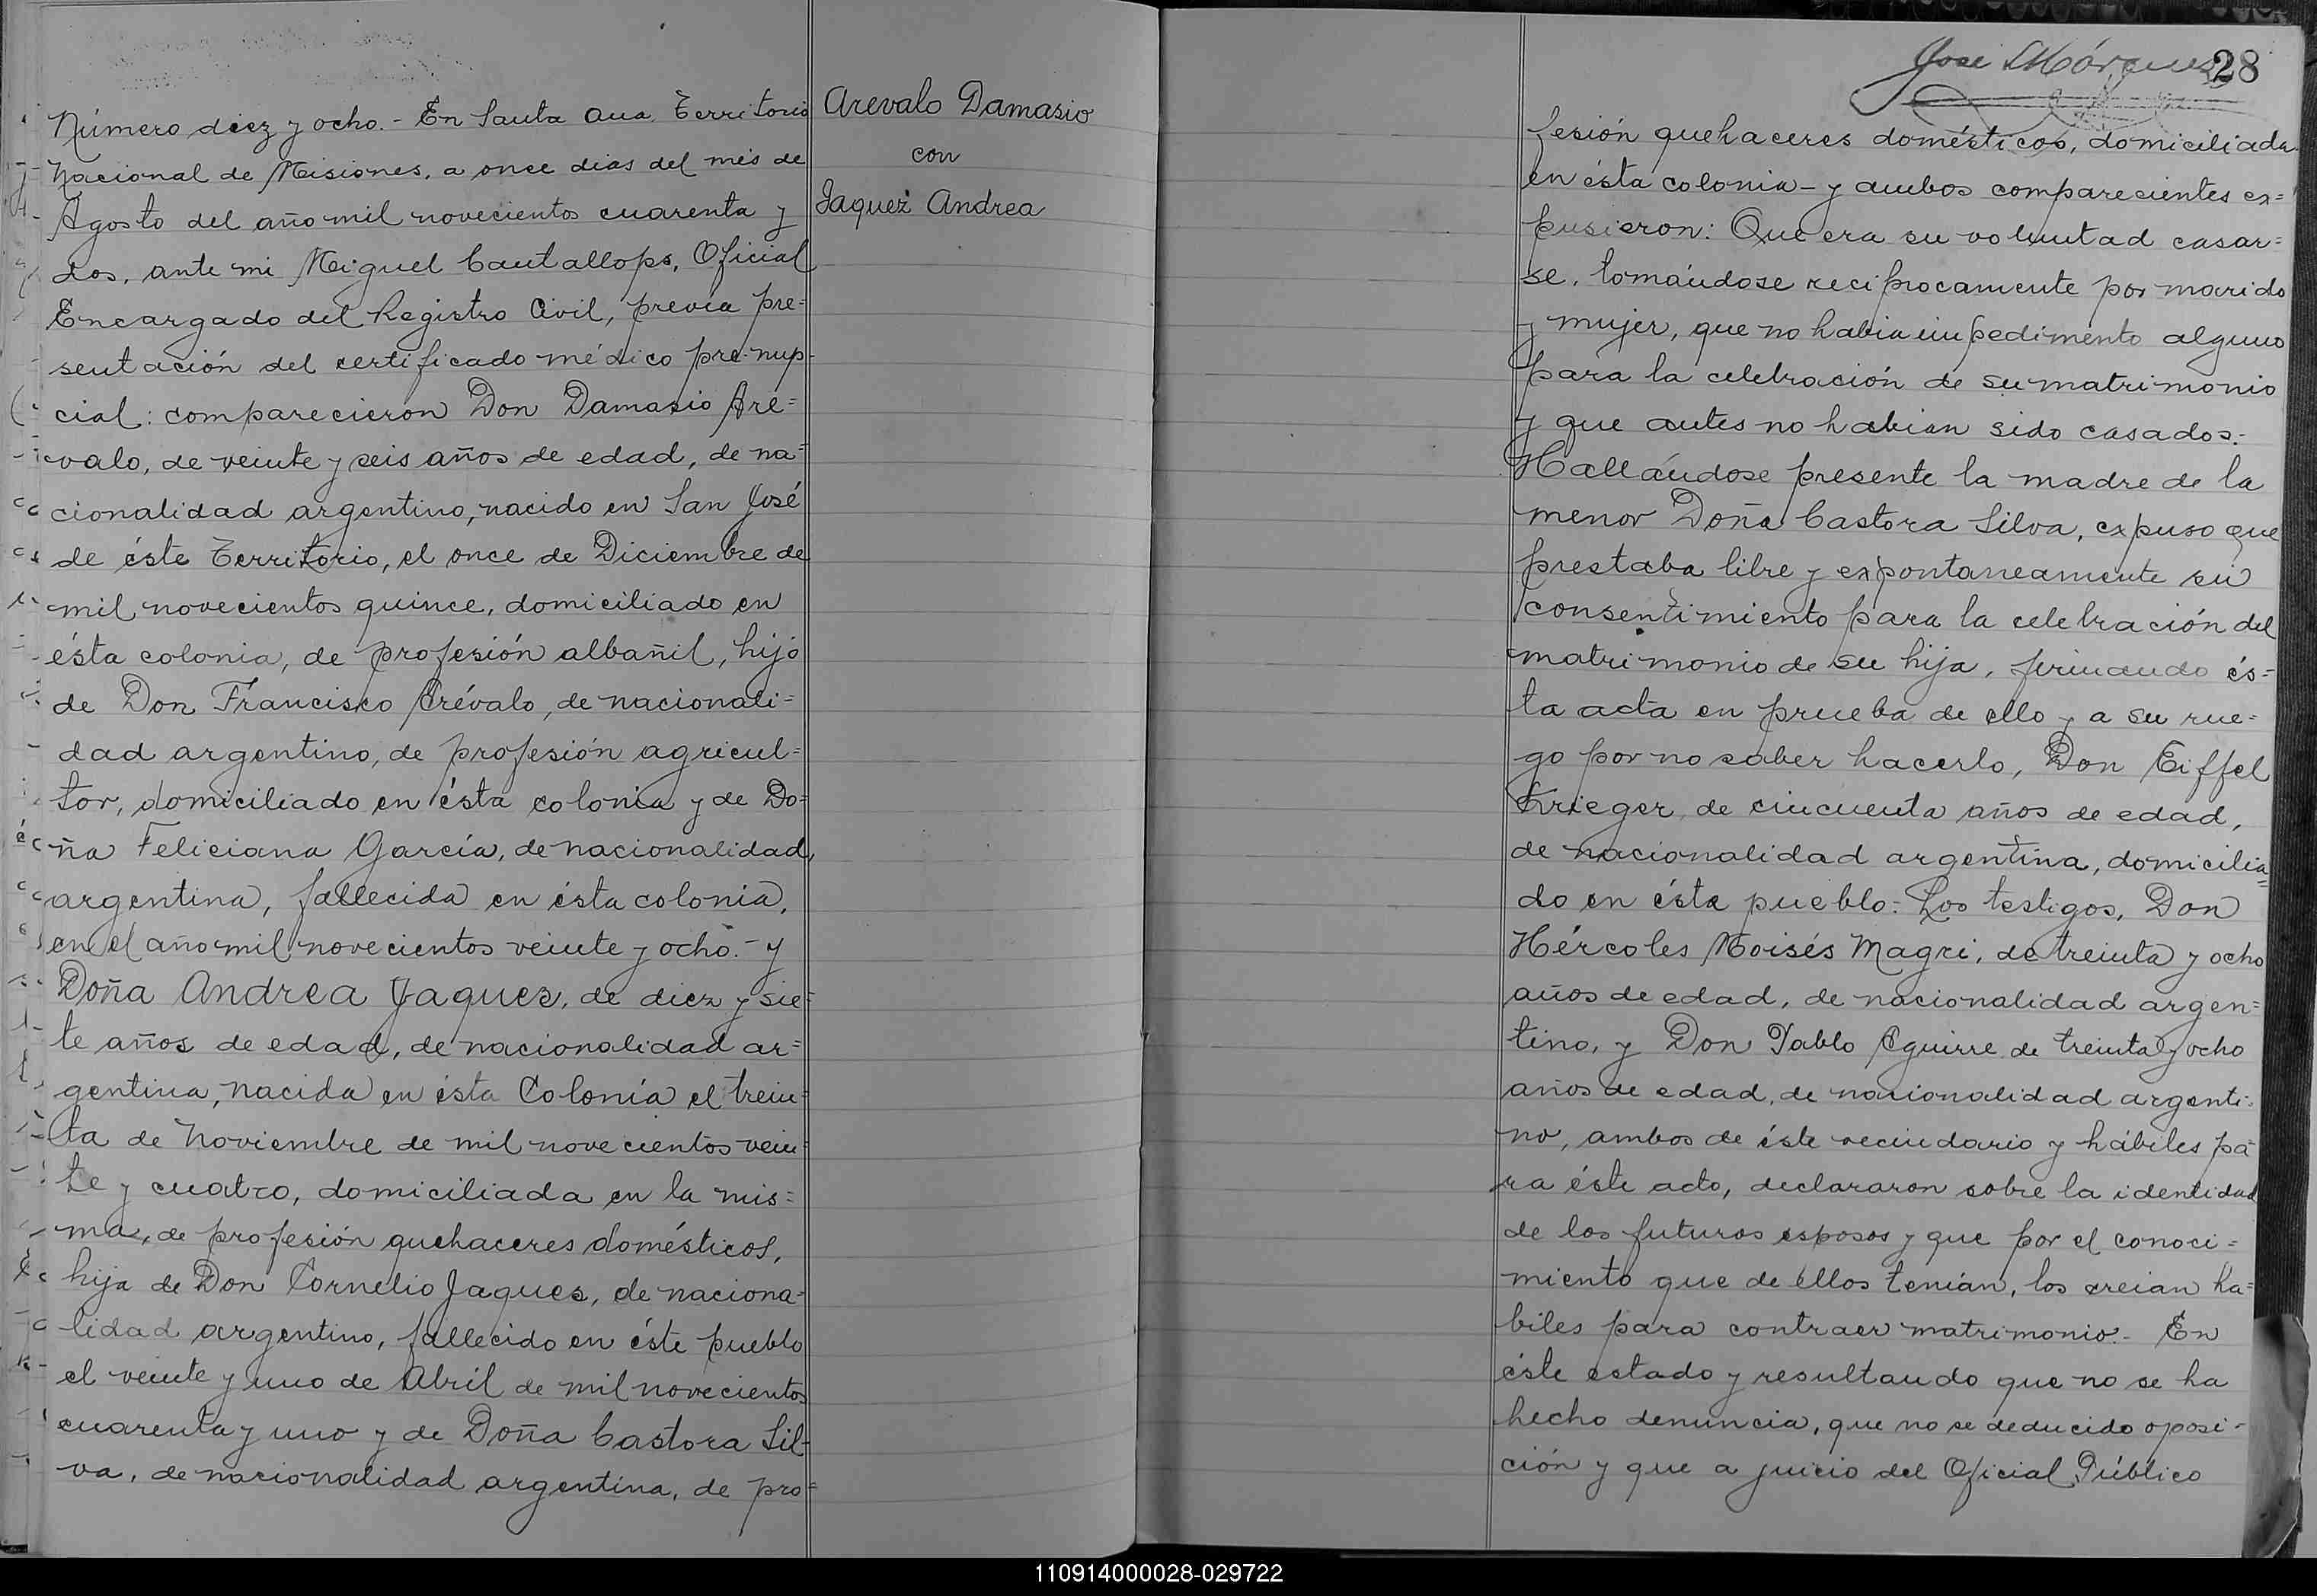 Número diez y ocho.- En Santa Ana Territorio
Nacional de Misiones, a once dias del més de
Agosto del año mil novecientos cuarenta y
dos, ante mi Miguel Cantallops, Oficial
Encargado del Registro Civil, prévia pre=
sentación del certificado médico pre-nup-
cial: comparecieron Don Damasio Aré=
valo, de veinte y seis años de edad, de na=
cionalidad argentino, nacido en San José
de éste Territorio, el once de Diciembre de
mil novecientos quince, domiciliado en
ésta colonia, de profesión albañil, hijo
de Don Francisco Arévalo, de nacionali=
dad argentino, de profesión agricul=
tor, domiciliado en ésta colonia y de Do=
ña Feliciana García, de nacionalidad
argentina, fallecida en ésta colonia,
en el año mil novecientos veinte y ocho.- y
Doña Andrea Jaques, de diez y sie=
te años de edad, de nacionalidad ar=
gentina, nacida en ésta Colonia el trein=
ta de Noviembre de mil novecientos vein=
te y cuatro, domiciliada en la mis=
ma, de profesión quehaceres domésticos,
hija de Don Cornelio Jaques, de naciona=
lidad argentino, fallecido en éste pueblo
el veinte y uno de Abril de mil novecientos
cuarenta y uno y de Doña Castora Sil-
va, de nacionalidad argentina, de pro=
Arevalo Damasio
con
Jaquez Andrea
José Márquez
28
fesión quehaceres domésticos, domiciliada
en ésta colonia- y ambos comparecientes ex=
pusieron: Que era su voluntad casar=
se, tomándose reciprocamente por marido
y mujer, que no habia impedimento alguno
para la celebración de su matrimonio
y que antes no habian sido casados.-
Hallándose presente la madre de la
menor Doña Castora Silva, expuso que
prestaba libre y expontaneamente su
consentimiento para la celebración del
matrimonio de su hija, firmando és=
ta acta en prueba de ello y a su rue=
go por no saber hacerlo, Don Eiffel
Krieger, de cincuenta años de edad,
de nacionalidad argentina, domicilia=
do en éste pueblo.- Los testigos, Don
Hércoles Moisés Magri, de treinta y ocho
años de edad, de nacionalidad argen=
tino, y Don Pablo Aguirre de treinta y ocho
años de edad, de nacionalidad argenti-
no, ambos de éste vecindario y hábiles pa
ra éste acto, declararon sobre la identidad
de los futuros esposos y que por el conoci=
miento que de ellos tenián, los creian ha=
biles para contraer matrimonio.- En
éste estado y resultando que no se ha
hecho denuncia, que no se deducido oposi-
ción y que a juicio del Oficial Público
110914000028-029722